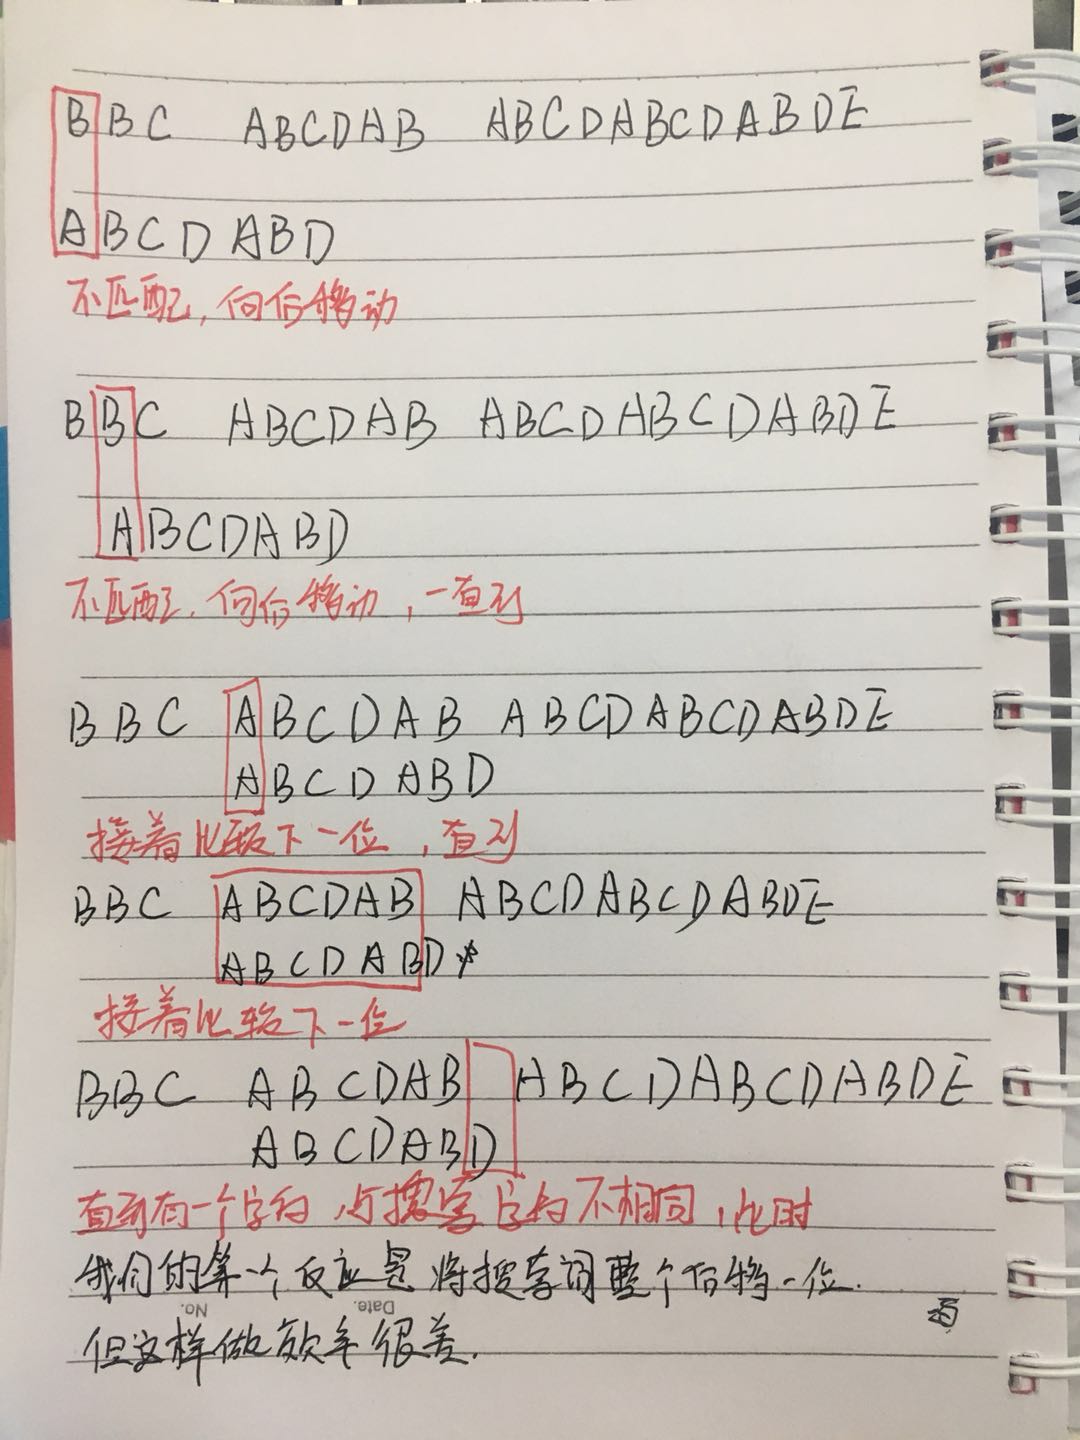 BBC ABCDAB ABCDABCDABDE
ABCDABD
不匹配,向后移动
BBC ABCDAB ABCDABCDABDE
ABCDABD
不匹配,向后移动,一直到
BBC ABCDAB ABCDABCDABDE
ABCDABD
接着比较下一位,直到
BBC ABCDAB ABCDABCDABDE
ABCDABD
接着比较下一位
BBC ABCDAB ABCDABCDABDE
ABCDABD
直到有一个字符,与搜索字符不相同,此时
我们的第一个反应是将搜索词整个后移一位.
No. Date.
但这样做效率很差.